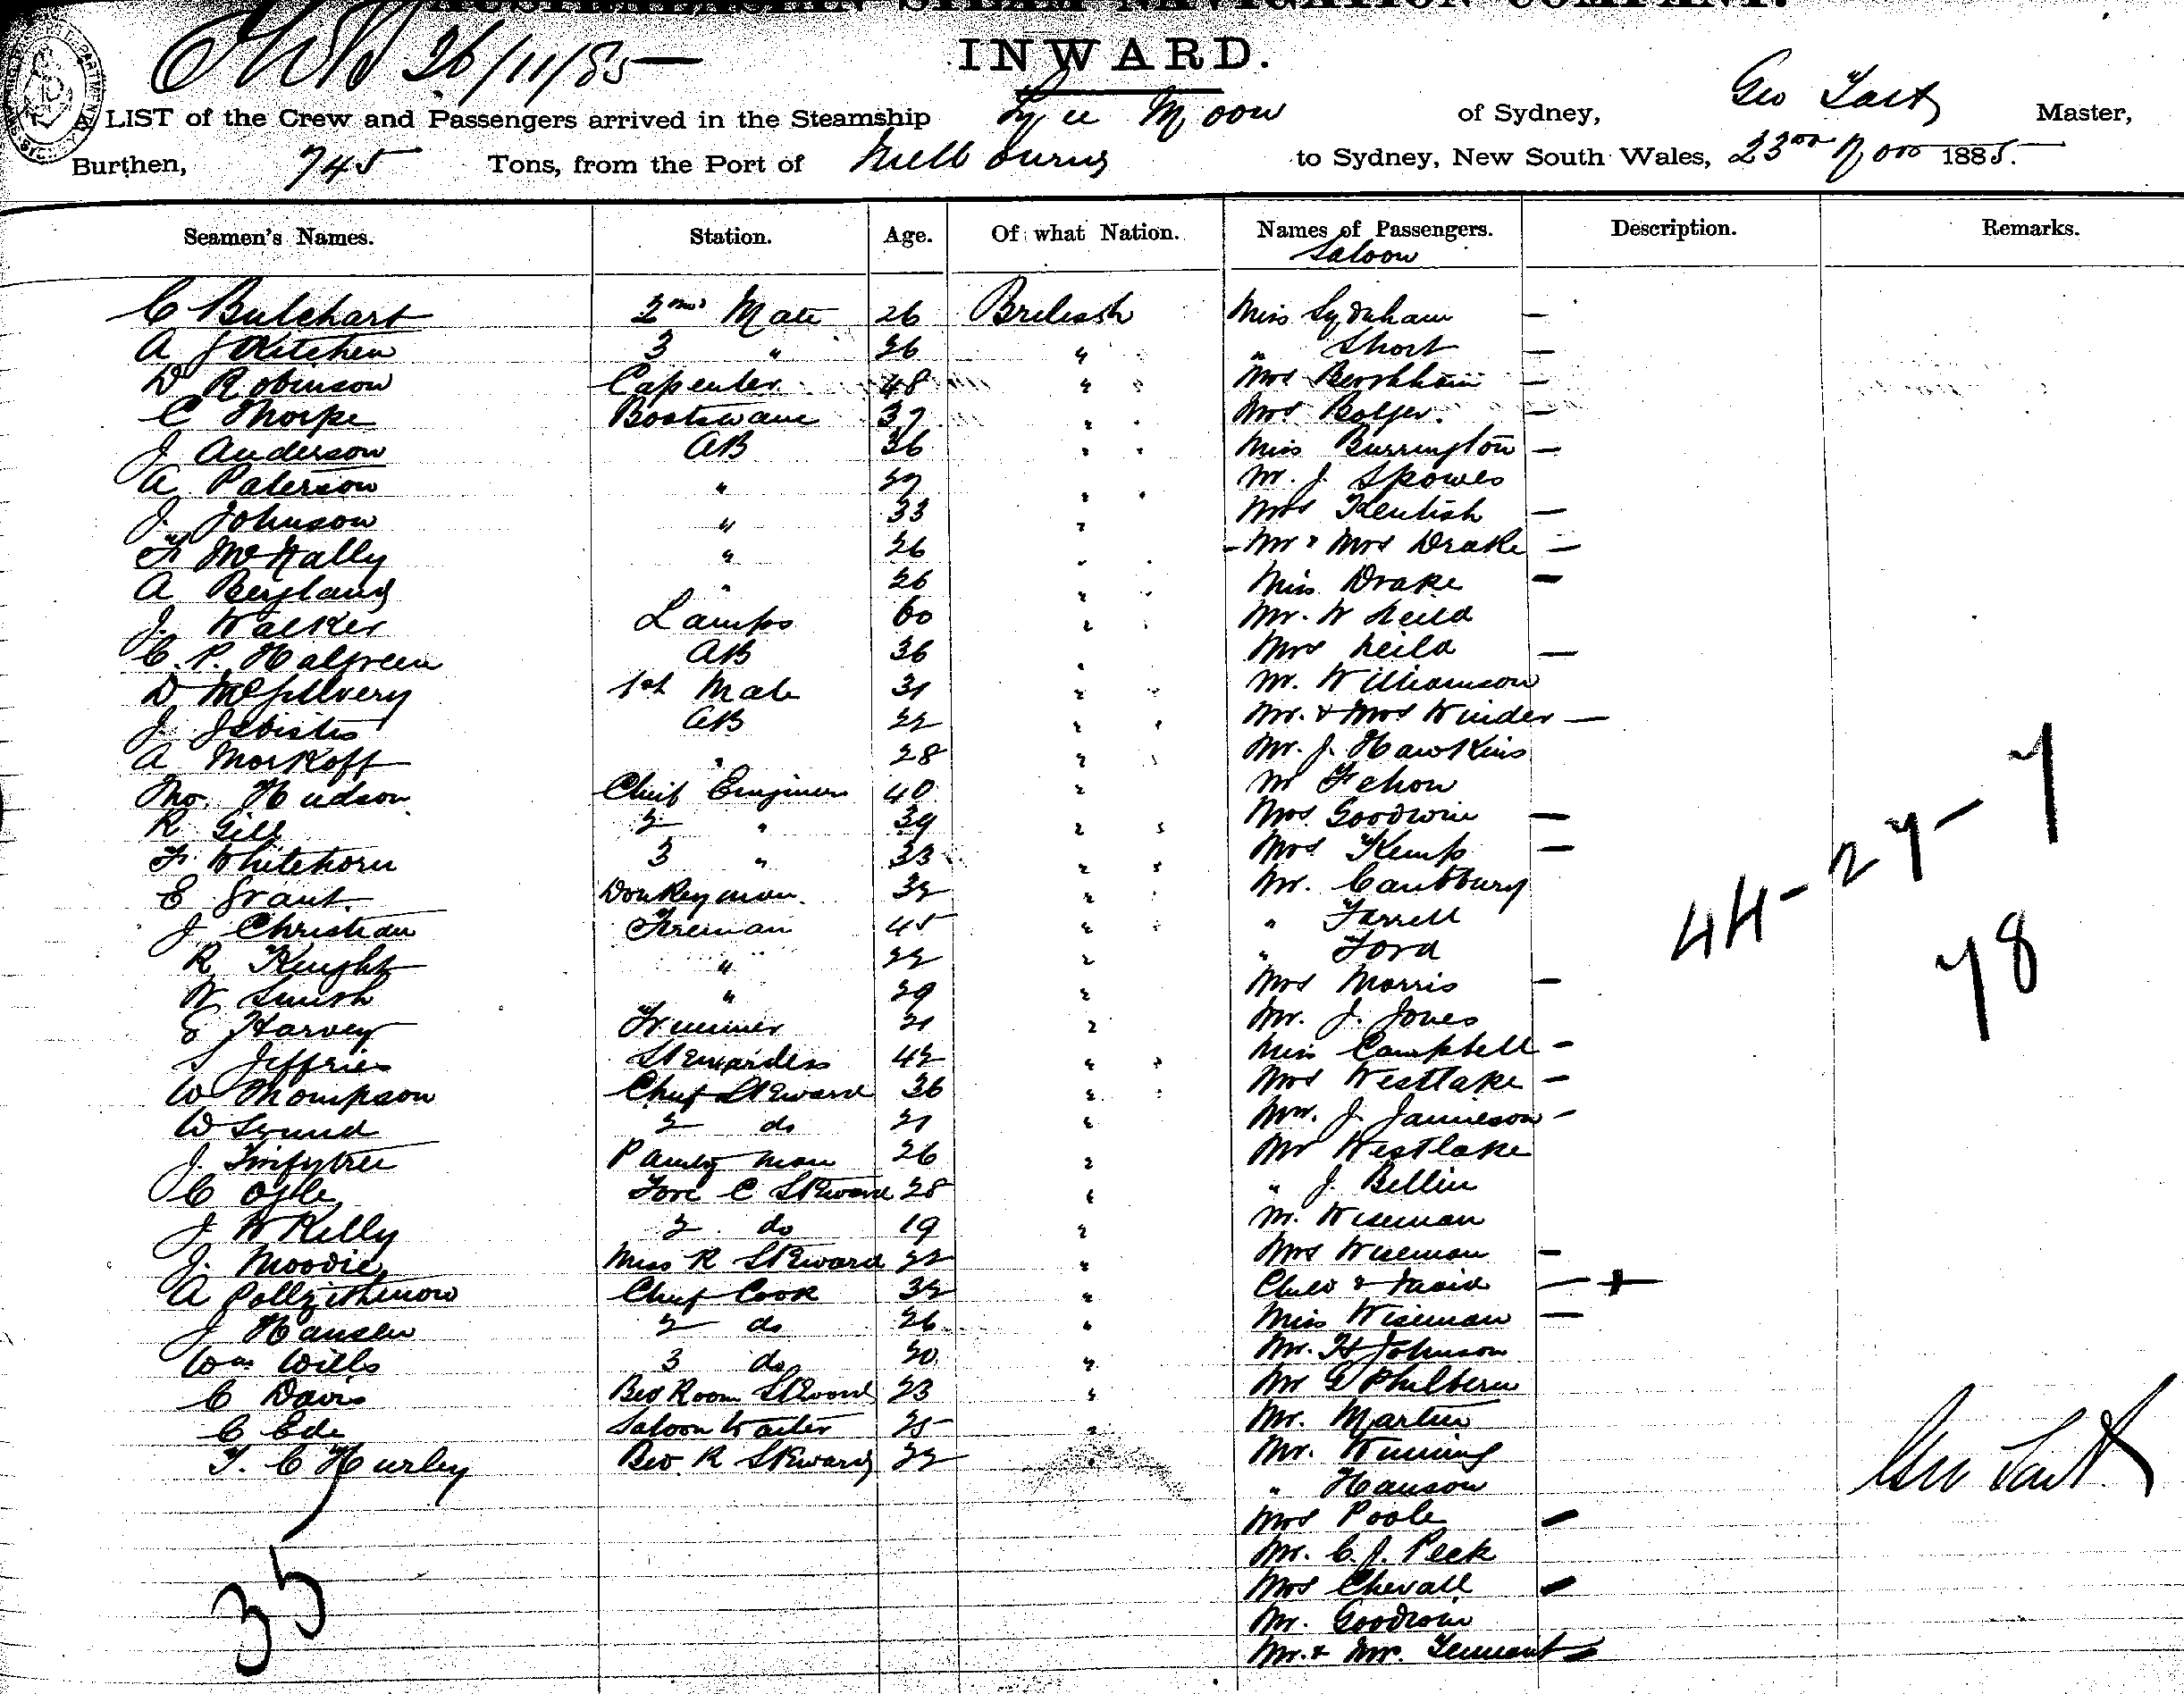 AUSTRALASIAN STEAM NAVIGATION COMPANY.
26/11/85
INWARD.
LIST of the Crew and Passengers arrived in the Steamship Ly ee Moon of Sydney, Geo Master,
Burthen, 745 Tons, from the Port of Melbourne to Sydney, New South Wales, 23rd Nov 1885.
Seamen's Names. Station. Age. Of what Nation. Names of Passengers. Description. Remarks.
Saloon
C Butchart 2nd Mate 26 British Miss Sydnham —
A J Kitchen 3 " 26 " " Short —
D Robinson Capenter 48 " Mrs —
C Thorpe Boatswane 37 " Mrs Bolger. —
J Anderson AB 36 " Miss Burrington —
A Paterson " " Mr. J. Spowes
J. Johnson " 33 " Mrs Kentish —
F McNally " 26 " Mr & Mrs Drake —
A " 26 " Miss Drake —
J. Walker Lamps 60 " Mr. W
C. P. Halgreen AB 36 " Mrs —
D McGillvery 1st Mate 31 " Mr. Williamson
J. AB 22 " Mr. & Mrs Winder —
A Morkoff " 28 " Mr. J. Hawkins
Tho. Hudson Chief Engineer 40 " Mr Fehon
R Gill 2 " 39 " Mrs Goodwin —
F. Whitehorn 3 " 33 " Mrs Kemp —
E Grant. Donkeyman. 32 " Mr. Cantbury
J Christian Fireman 45 " " Farrell
R Knight " 22 " " Ford
W Smith " 29 " Mrs Morris —
E Harvey Trimmer 21 " Mr. J. Jones
S Jeffries Stewardess 42 " Miss Campbell —
W Thompson Chief Steward 36 " Mrs Westlake —
W 2 do 21 " Mr. J. Jamieson —
J. Pantry man 26 " Mr Westlake
C Ogle Fore C Steward 28 " " J. Bellin
J W Kelly 2 do 19 " Mr. Wiseman
J. Moodie Mess R Steward 22 " Mrs Wiseman —
A Chief Cook 32 " Child & Maid — +
J Hansen 2 do 26 " Miss Wiseman —
Wm Wills 3 do 20 " Mr. H Johnson
C Davis Bed Room Steward 23 " Mr G
C Ede Saloon Waiter 25 " Mr. Martin
T. C Hurley Bed. R Steward 22 " Mr.
" Hanson
Mrs Poole —
Mr. C. J. Peck
Mrs Chevall —
Mr. Goodwin
Mr. & Mrs. Tennant —
44 - 27 - 7
78
35
Geo